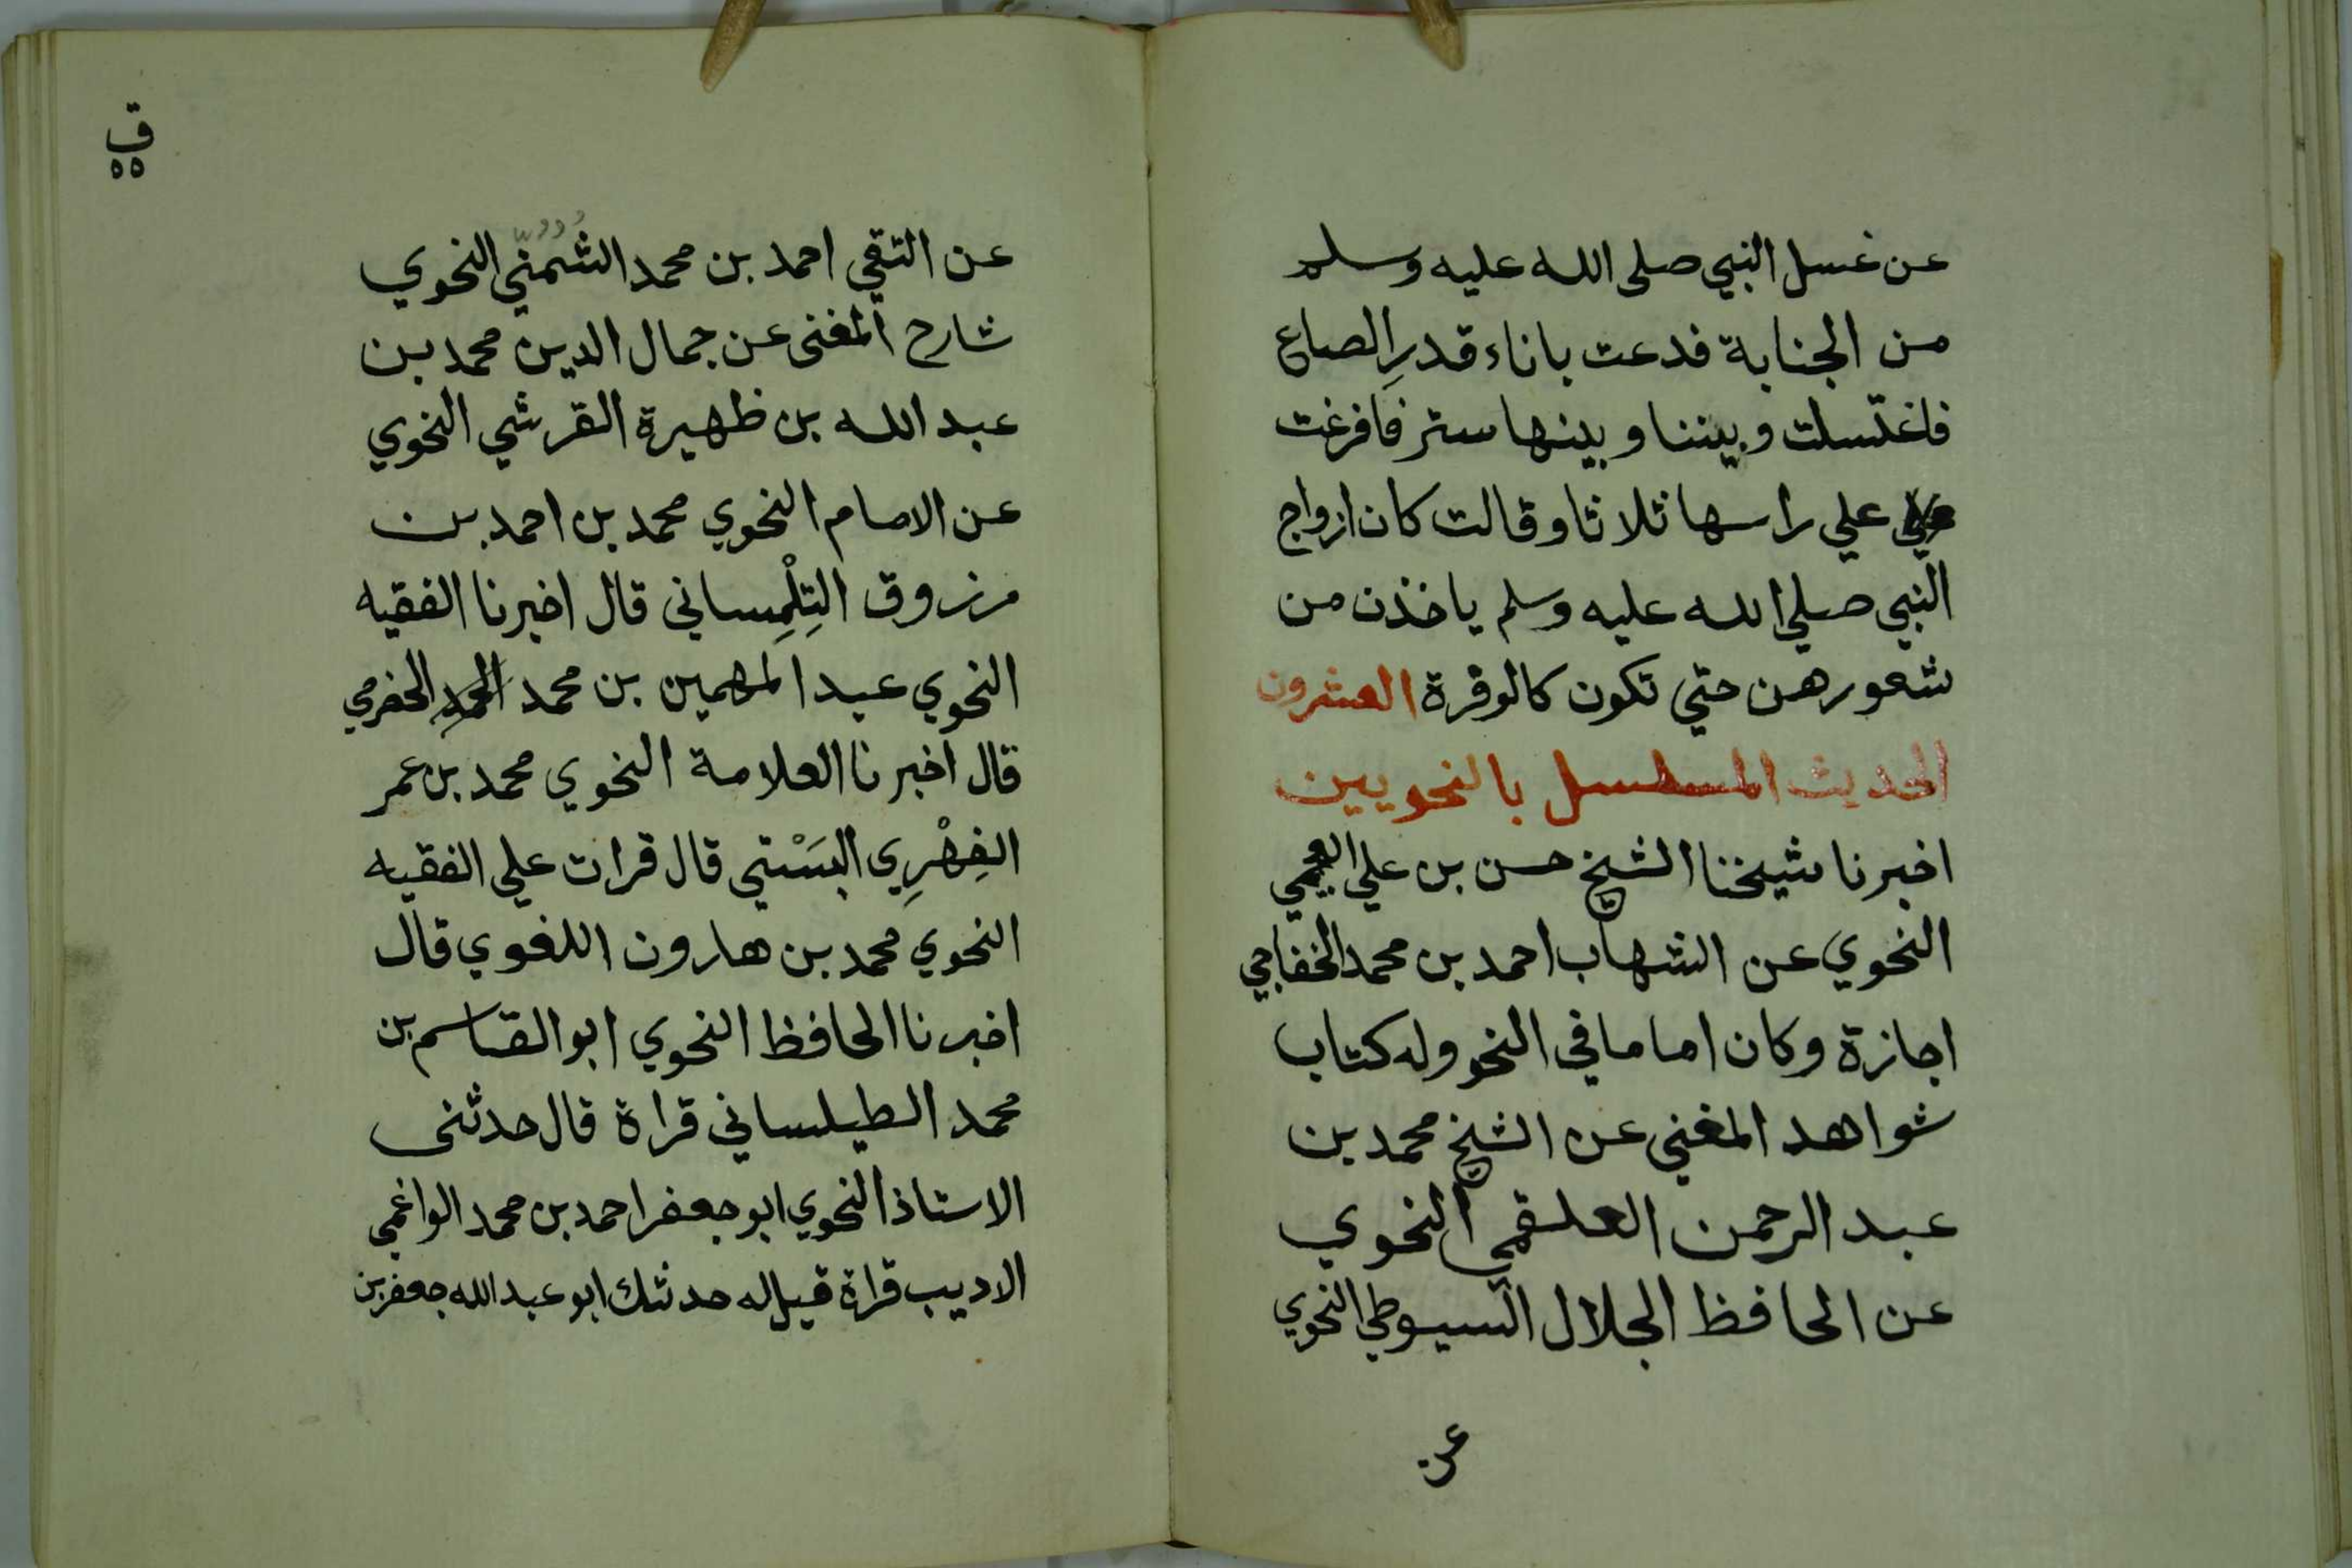 عن غسل النبي صلى الله عليه وسلم
من الجنابة فدعت باناء قدرِ الصاع
فاغتسلت وبيننا وبينها ستر فافرغت
علي راسها ثلاثا وقالت كان ازواج
النبي صلي الله عليه وسلم ياخذن من
شعورهن حتي تكون كالوفرة العشرون
الحديث المسلسل بالنحويين
اخبرنا شيخنا الشيخ حسن بن علي العجمي
النحوي عن الشهاب احمد بن محمد الخفاجي
اجازة وكان اماما في النحو وله كتاب
شواهد المغني عن الشيخ محمد بن
عبد الرحمن العلقمي النحوي
عن الحافظ الجلال السيوطي النحوي
عن
ق
٥٥
عن التقي احمد بن محمد الشُمُنّي النحوي
شارح المغنى عن جمال الدين محمد بن
عبد الله بن ظهيرة القرشي النحوي
عن الامام النحوي محمد بن احمد بن
مرزوق التِلْمِساني قال اخبرنا الفقيه
النحوي عبد المهمين بن محمد الحضرمي
قال اخبرنا العلامة النحوي محمد بن عمر
الفِهْرِي البَسْتي قال قرات علي الفقيه
النحوي محمد بن هارون اللغوي قال
اخبرنا الحافظ النحوي ابو القاسم بن
محمد الطيلساني قراة قال حدثنى
الاستاذ النحوي ابو جعفر احمد بن محمد الواغمي
الاديب قراة قيل له حدثك ابو عبد الله جعفر بن